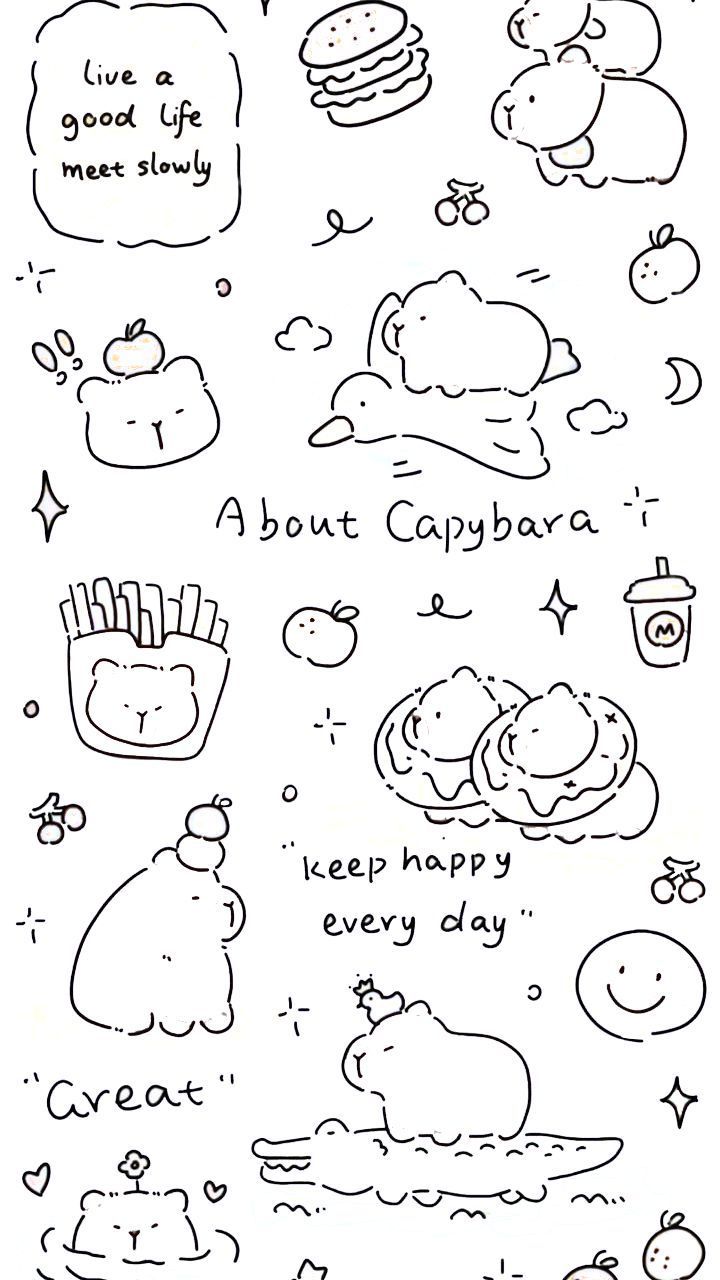 live a
good life
meet slowly
About Capybara
M
"keep happy
every day"
"Great"